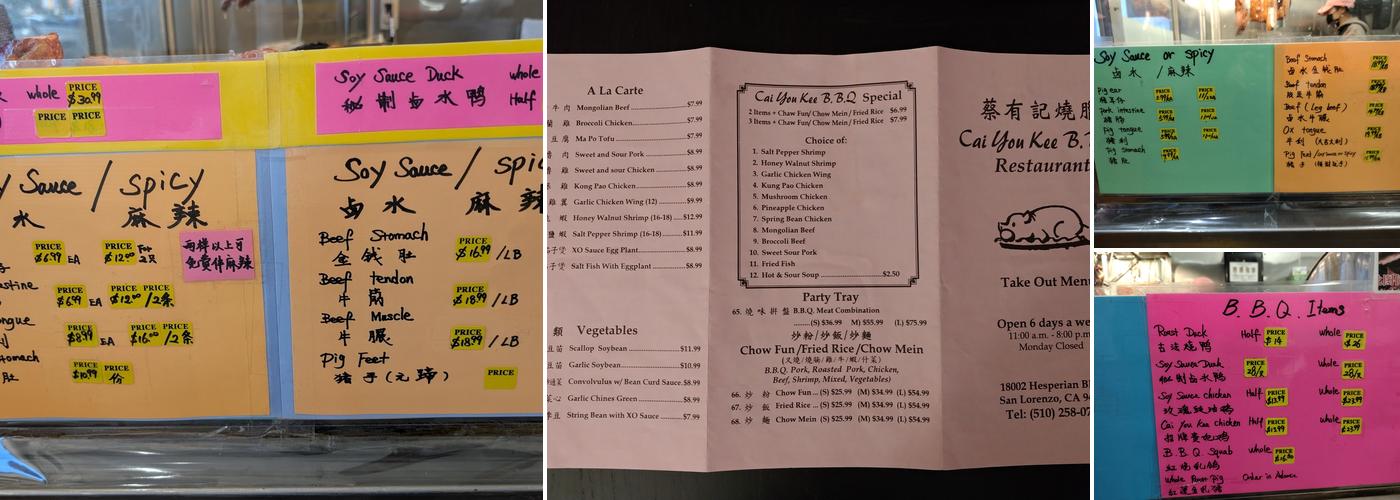 whole PRICE $30.99
PRICE PRICE
Soy Sauce Duck whole
秘制卤水鸭 Half
Soy Sauce / spicy
水 麻辣
PRICE $6.99 EA PRICE $12.00 For 2只
两样以上可
免费伴麻辣
PRICE $6.99 EA PRICE $12.00 PRICE /2条
PRICE $8.99 EA PRICE $16.00 PRICE /2条
PRICE $10.99 PRICE 份
Soy Sauce / spic
卤水 麻辣
Beef Stomach PRICE $16.99 /LB
金钱肚
Beef tendon PRICE $18.99 /LB
牛
Beef Muscle PRICE $18.99 /LB
牛
Pig Feet PRICE
猪手(元蹄)
A La Carte
牛 肉 Mongolian Beef $7.99
雞 Broccoli Chicken $7.99
豆 腐 Ma Po Tofu $7.99
肉 Sweet and Sour Pork $8.99
雞 Sweet and sour Chicken $8.99
雞 Kong Pao Chicken $8.99
雞 翼 Garlic Chicken Wing (12) $9.99
蝦 Honey Walnut Shrimp (16-18) $12.99
鹽 蝦 Salt Pepper Shrimp (16-18) $11.99
子 煲 XO Sauce Egg Plant $8.99
子 煲 Salt Fish With Eggplant $8.99
類 Vegetables
豆苗 Scallop Soybean $11.99
豆苗 Garlic Soybean $10.99
Convolvulus w/ Bean Curd Sauce $8.99
菜心 Garlic Chines Green $8.99
季豆 String Bean with XO Sauce $7.99
Cai You Kee B.B.Q Special
2 Items + Chaw Fun/ Chow Mein/ Fried Rice $6.99
3 Items + Chaw Fun/ Chow Mein/ Fried Rice $7.99
Choice of:
1. Salt Pepper Shrimp
2. Honey Walnut Shrimp
3. Garlic Chicken Wing
4. Kung Pao Chicken
5. Mushroom Chicken
6. Pineapple Chicken
7. Spring Bean Chicken
8. Mongolian Beef
9. Broccoli Beef
10. Sweet Sour Pork
11. Fried Fish
12. Hot & Sour Soup $2.50
Party Tray
65. 燒 味 拼 盤 B.B.Q. Meat Combination
(S) $36.99 M) $55.99 (L) $75.99
炒粉/炒飯/炒麵
Chow Fun /Fried Rice /Chow Mein
(叉燒/燒豬/雞/牛/蝦/什菜)
B.B.Q. Pork, Roasted Pork, Chicken,
Beef, Shrimp, Mixed, Vegetables)
66. 炒 粉 Chow Fun (S) $25.99 (M) $34.99 (L) $54.99
67. 炒 飯 Fried Rice (S) $25.99 (M) $34.99 (L) $54.99
68. 炒 麵 Chow Mein (S) $25.99 (M) $34.99 (L) $54.99
蔡有記燒腊
Cai You Kee B.B.
Restaurant
Take Out Menu
Open 6 days a we
11:00 a.m. - 8:00 p.m
Monday Closed
18002 Hesperian Bl
San Lorenzo, CA 94
Tel: (510) 258-07
Soy Sauce or spicy
卤水 /麻辣
Pig ear
Pork intestine
Pig tongue
猪利
Pig Stomach
猪肚
Beef Stomach
卤水金钱肚
Beef tendon
Beef (Leg beef)
卤水牛
Ox tongue
牛利
Pig Feet
猪手
B.B.Q. Items
Roast Duck Half PRICE $14 whole PRICE $26
古法烧鸭
Soy Sauce Duck PRICE whole PRICE
秘制卤水鸭
Soy Sauce chicken Half PRICE $13.99 whole PRICE $23.99
玫瑰豉油鸡
Cai You Kee chicken Half PRICE $13.99 whole PRICE $23.99
招牌
B.B.Q Squab whole PRICE $16.00
红烧乳鸽
whole Roast Pig Order in Advance